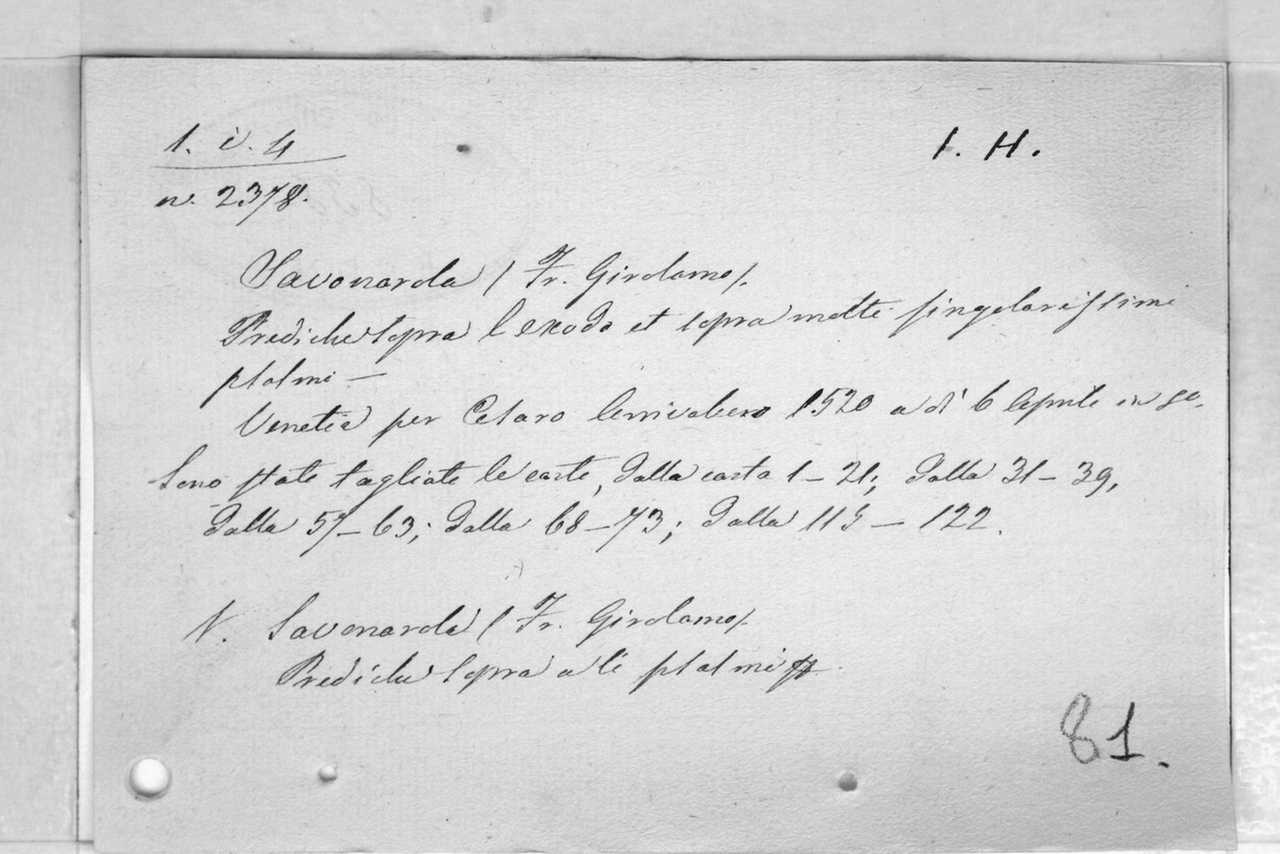 1. i. 4
I. H.
n. 2378.
Savonarola (Fr. Girolamo).
Prediche sopra l exodo et sopra molti singularissimi
psalmi —
Venetia per Cesaro 1520 a di 6 Aprile in
Sono state tagliate le carte, dalla carta 1 – 21; dalla 31 – 39,
dalla 57 – 63; dalla 68 – 73; dalla 115 – 122.
V. Savonarola (Fr. Girolamo).
Prediche sopra ali psalmi
81.